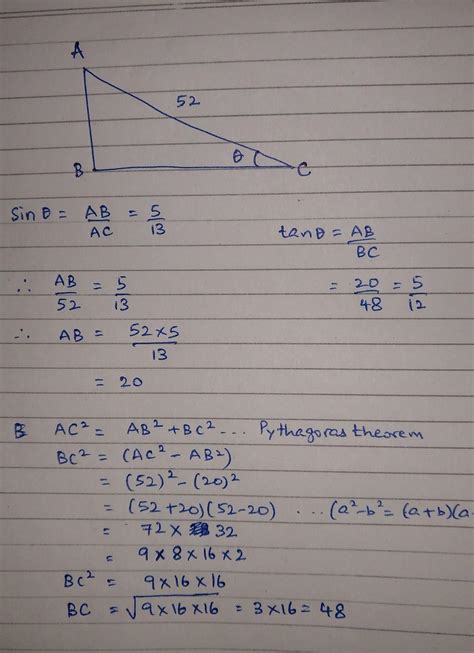 A
52
θ
B
C
sin θ = AB/AC = 5/13
tanθ = AB/BC
∴ AB/52 = 5/13
= 20/48 = 5/12
∴ AB = 52×5/13
= 20
AC² = AB² + BC² ... Pythagoras theorem
BC² = (AC² - AB²)
= (52)² - (20)²
= (52+20)(52-20) ... (a²-b² = (a+b)(a-
= 72 × 32
= 9 × 8 × 16 × 2
BC² = 9×16×16
BC = √9×16×16 = 3×16 = 48